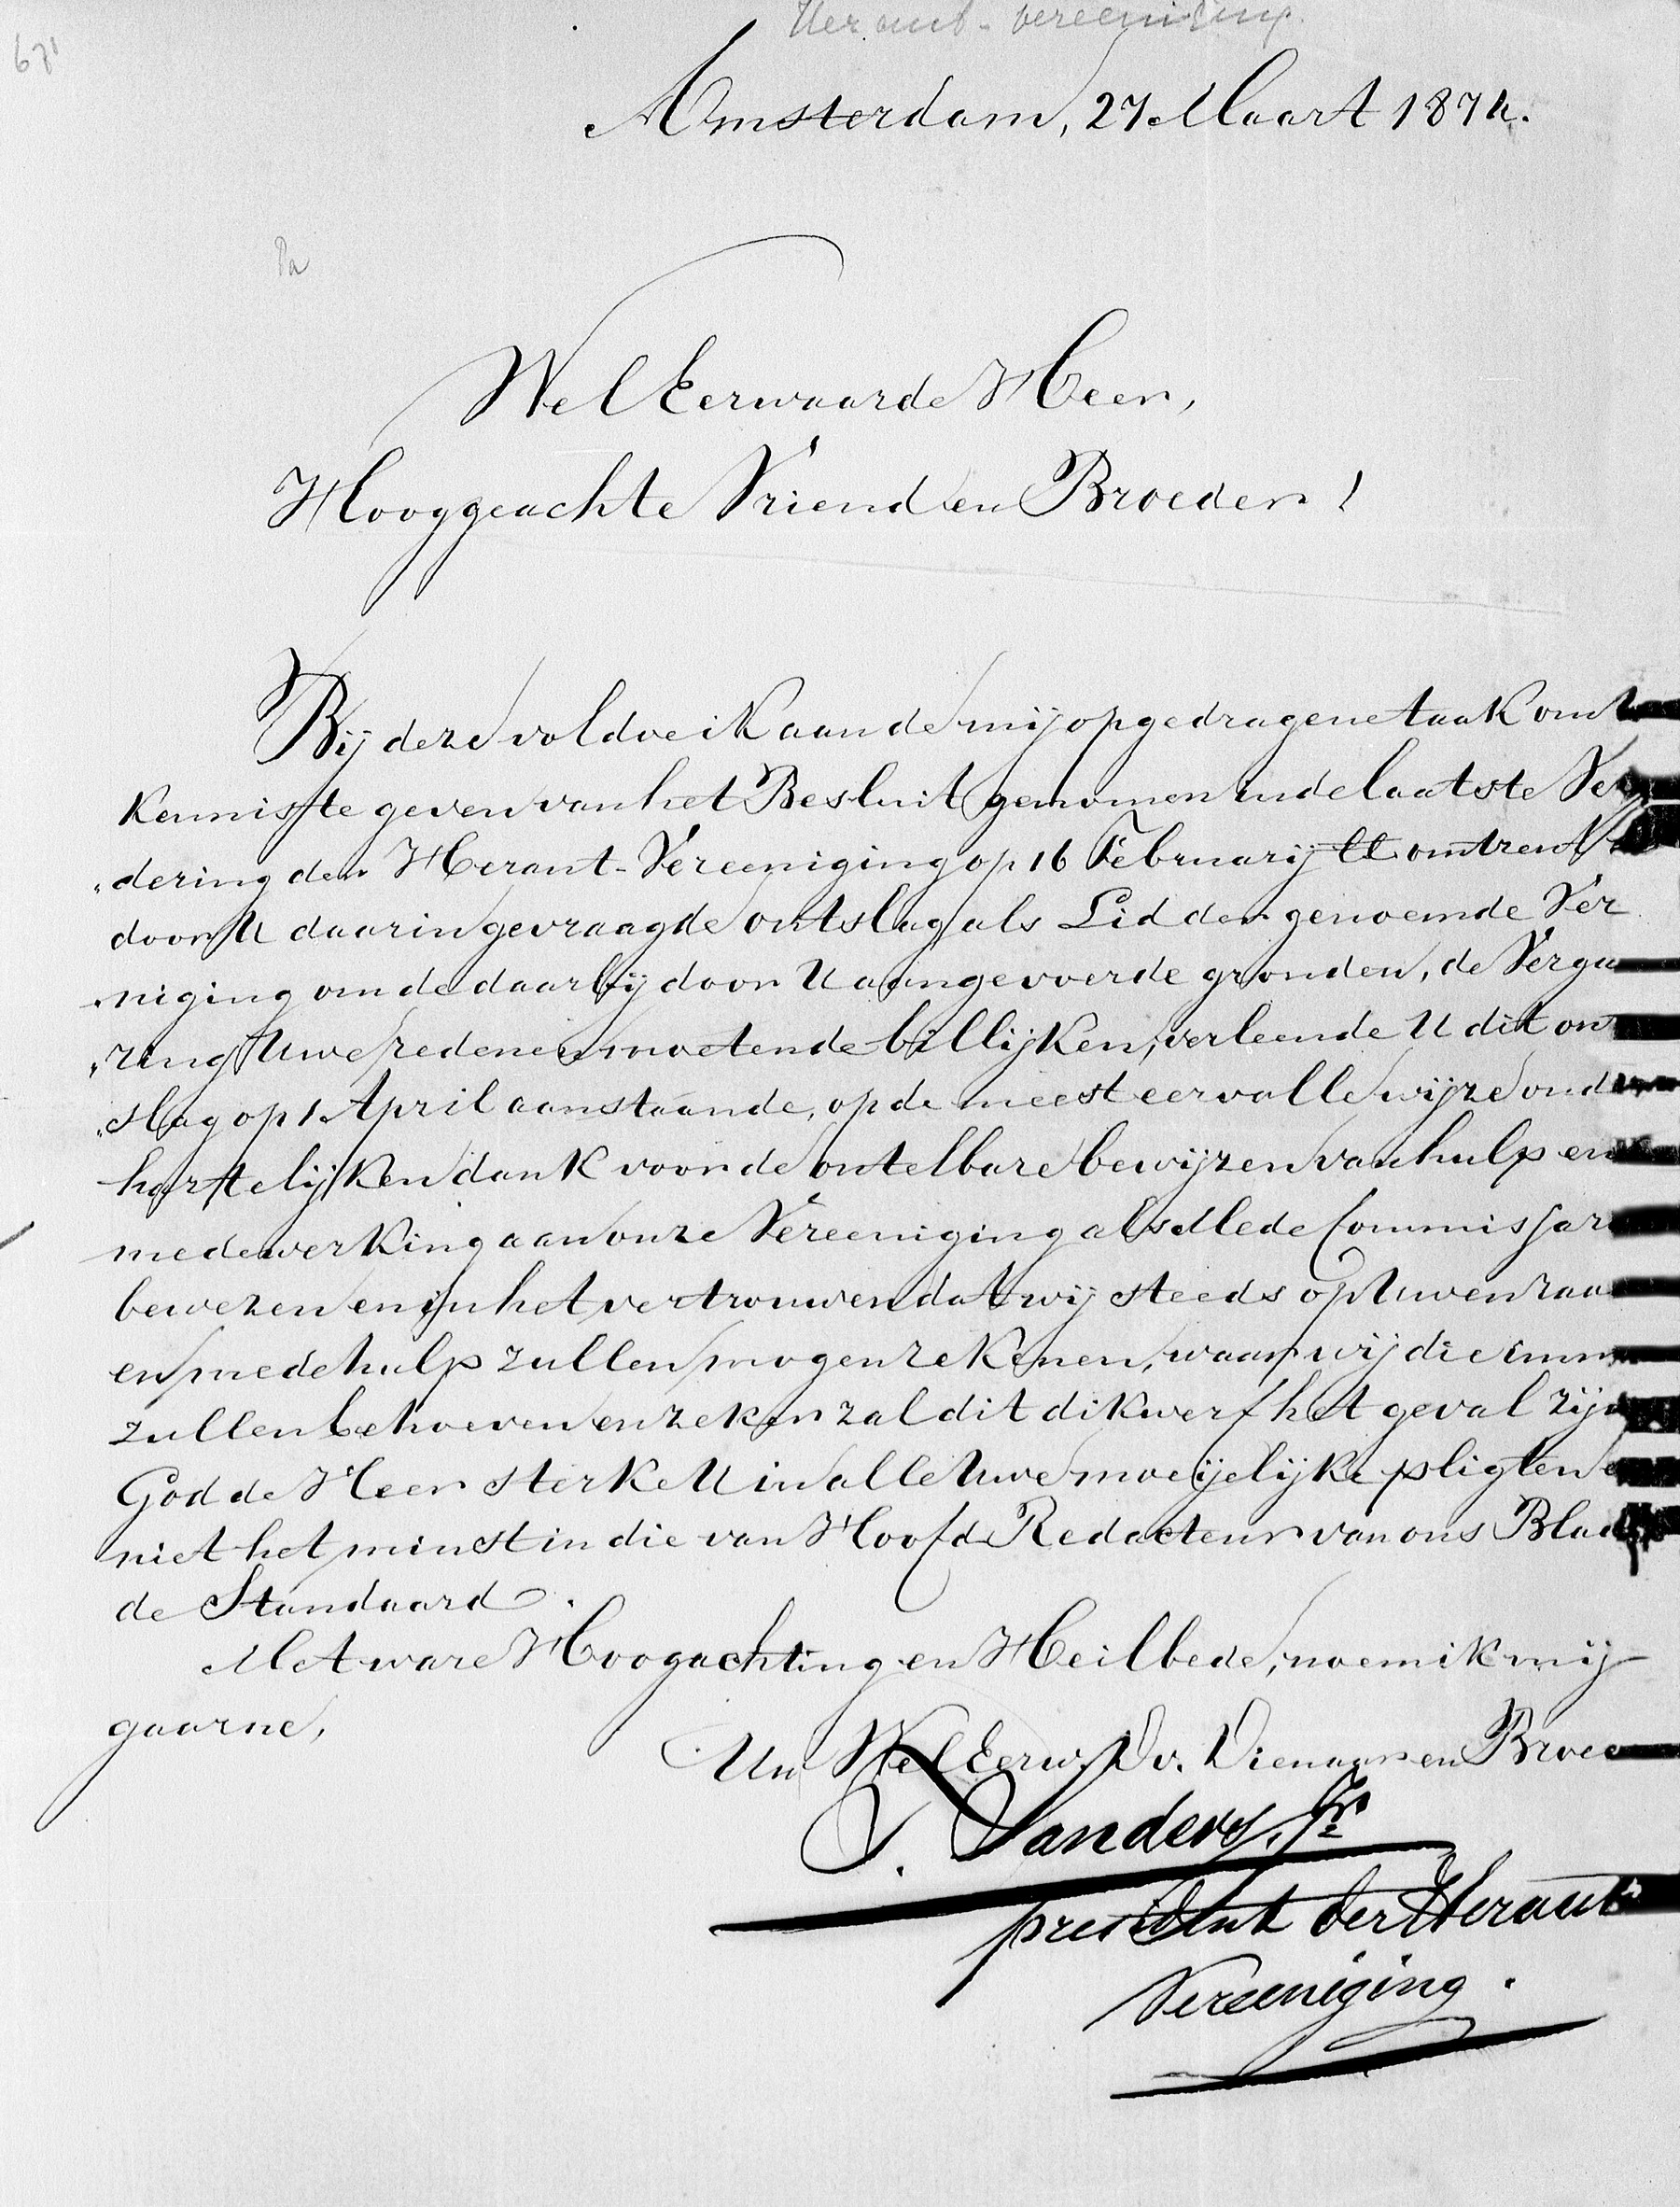 671
Heraut-vereeniging.
Amsterdam, 27 Maart 1874.
Pa
WelEerwaarde Heer,
Hooggeachte Vriend en Broeder!
Bij deze voldoe ik aan de mij opgedragene taak om
Kennis te geven van het Besluit genomen in de laatste Ver
„dering der Heraut-Vereeniging op 16 Februarij ll omtrent
door U daarin gevraagde ontslag als Lid der genoemde Ver
„niging om de daarbij door U aangevoerde gronden, de Verga
„ring Uwe redenen moetende billijken, verleende U dit ont
„slag op 1 April aanstaande, op de meest eervolle wijze ond
hartelijken dank voor de ontelbare bewijzen van hulp en
medewerking aan onze Vereeniging als Mede Commissar
bewezen en in het vertrouwen dat wij steeds op Uwen raa
en medehulp zullen mogen rekenen, waar wij die imm
zullen behoeven en zeker zal dit dikwerf het geval zijn
God de Heer sterke U in alle Uwe moeijelijke pligten e
niet het minst in die van Hoofd Redacteur van ons Blad
de Standaard.
Met ware Hoogachting en Heilbede, noem ik mij
gaarne,
Uw WelEerw. Dv. Dienaar en Broed
J. Sanders, Jr
president der Heraut
Vereeniging.